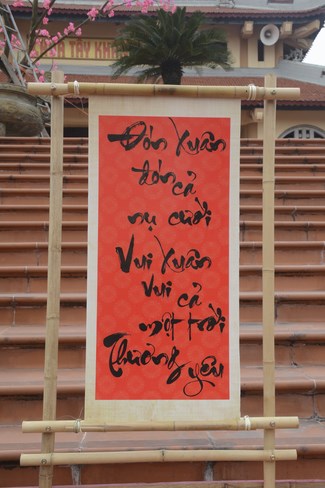 Đón Xuân
đón cả
nụ cười
Vui Xuân
vui cả
một trời
Thương yêu